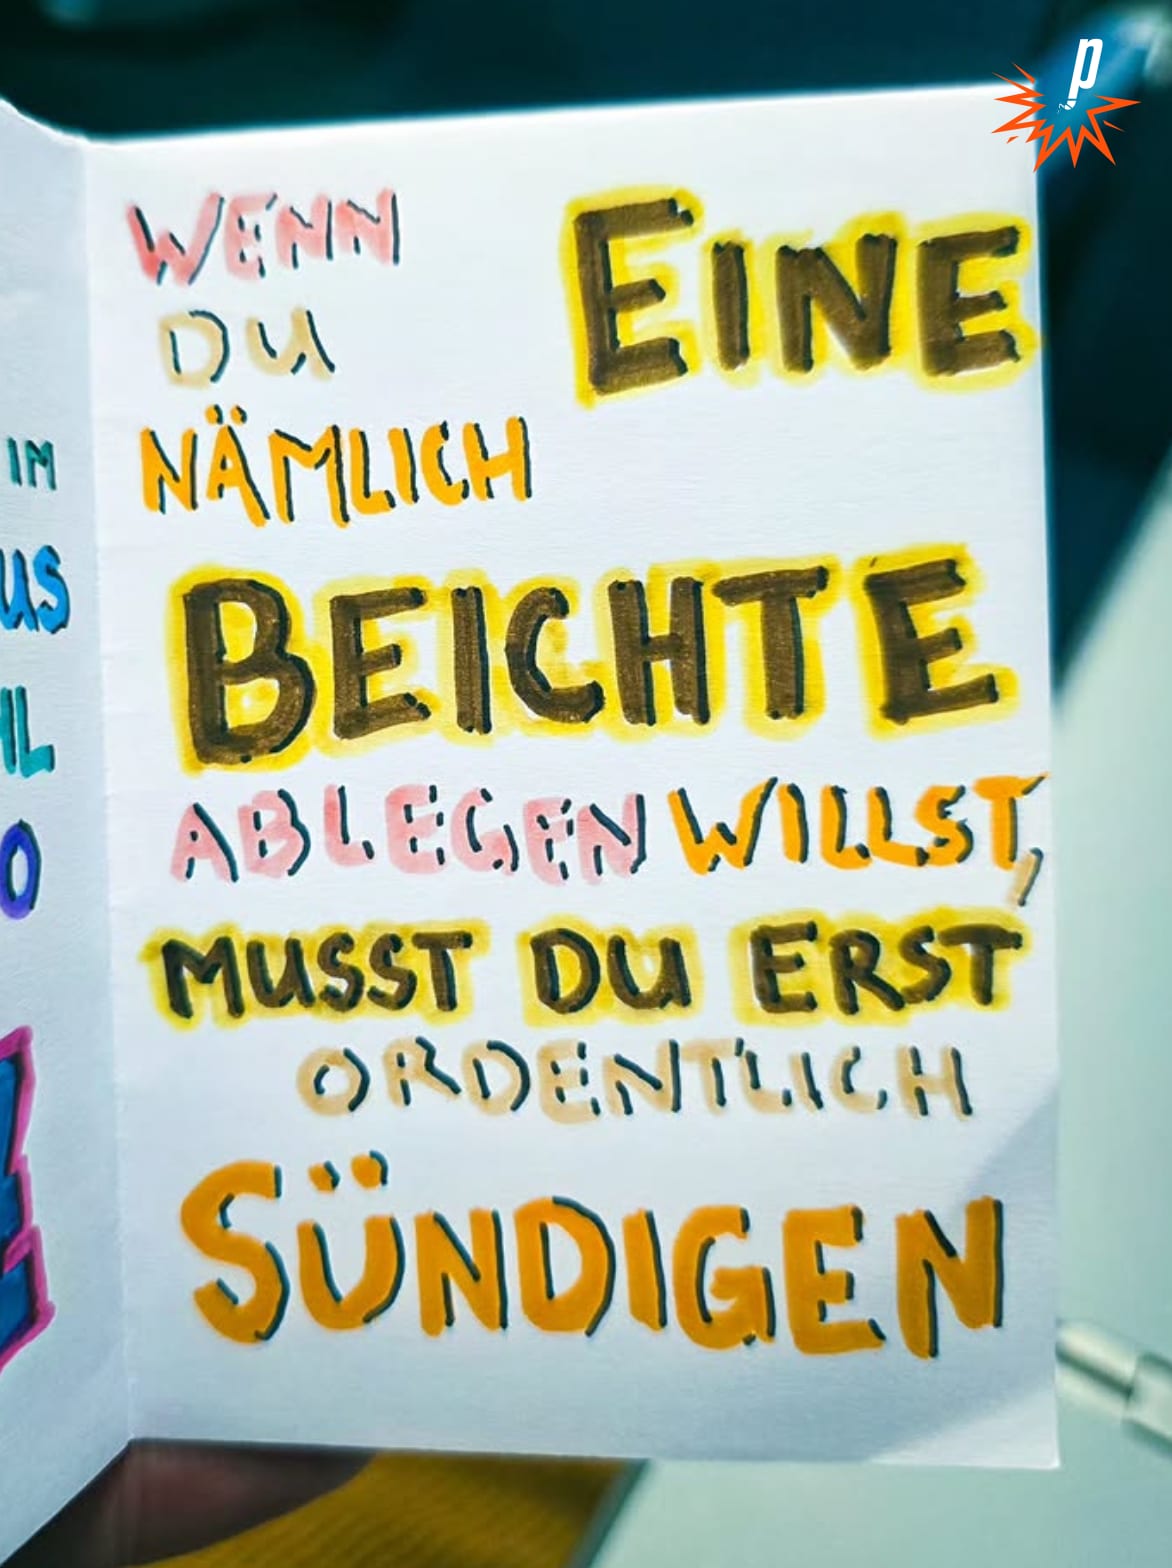 WENN
EINE
DU
NÄMLICH
BEICHTE
ABLEGEN WILLST,
MUSST DU ERST
ORDENTLICH
SÜNDIGEN
IM
US
IL
O
p